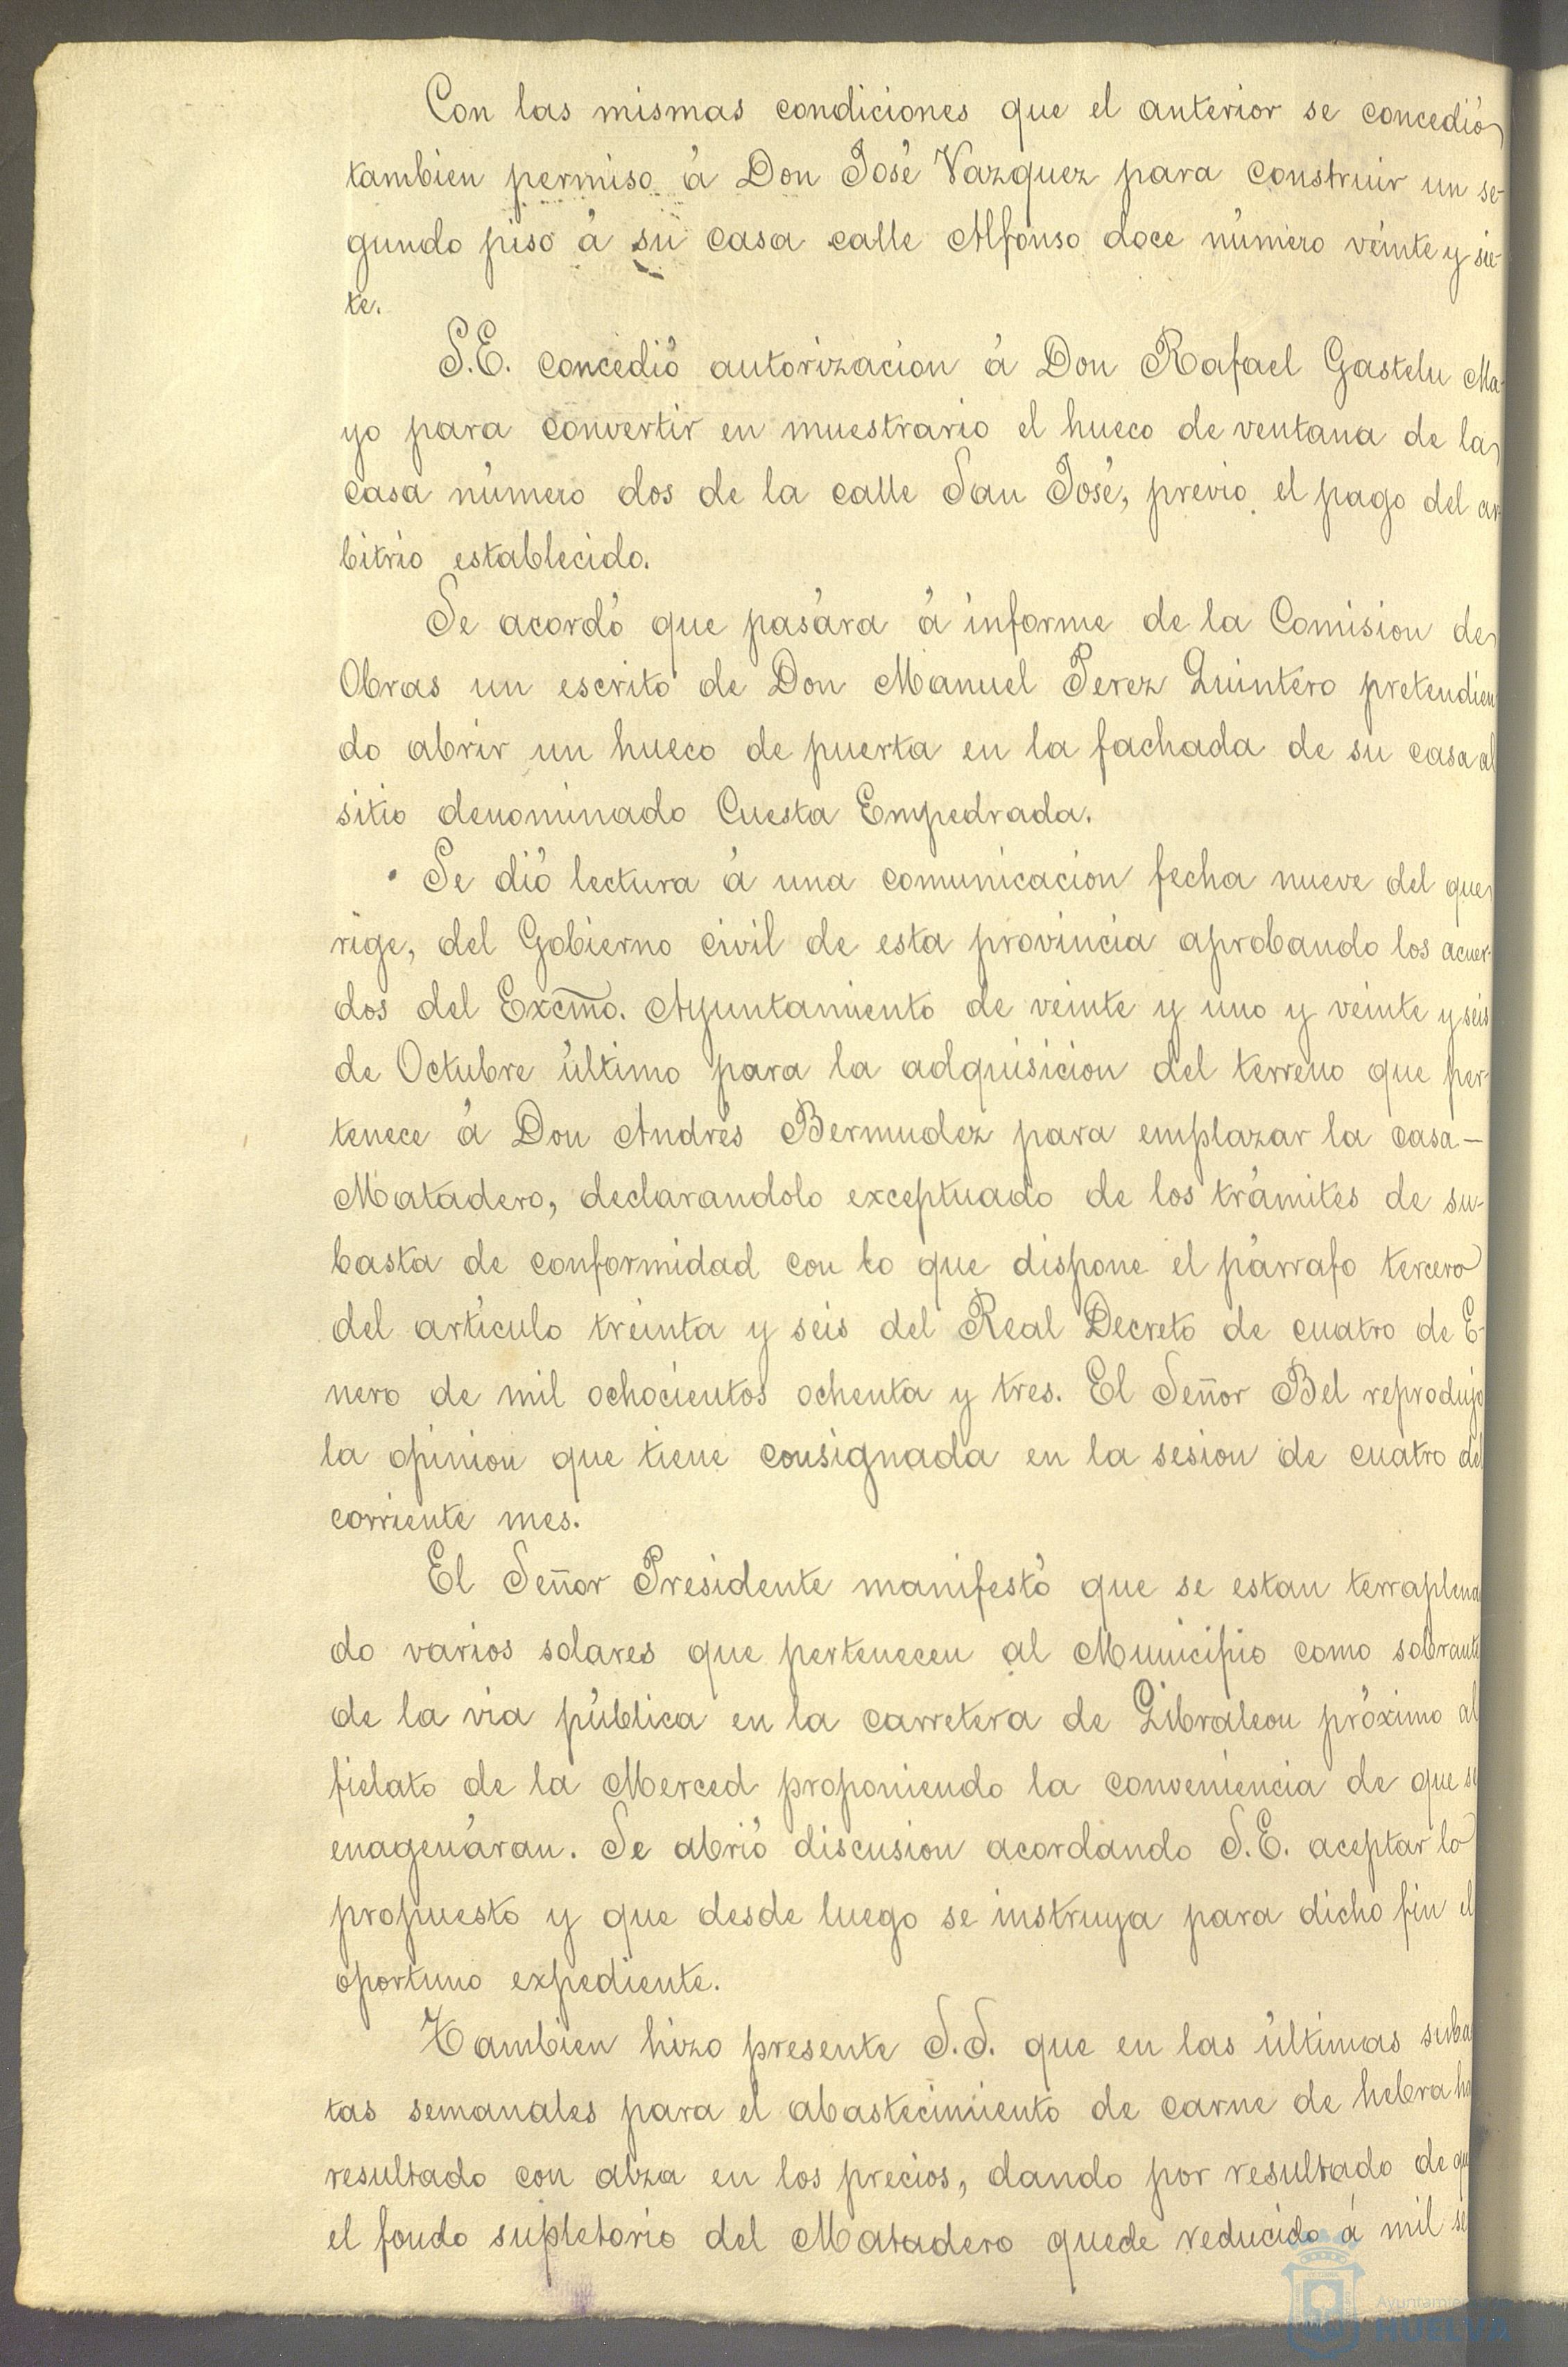 Con las mismas condiciones que el anterior se concedió
tambien permiso á Don José Vazquez para construir un se-
gundo piso á su casa calle Alfonso doce número veinte y sie-
te.
S.E. concedió autorizacion á Don Rafael Gastelu Ma-
yo para convertir en muestrario el hueco de ventana de la
casa número dos de la calle San José, previo el pago del ar-
bitrio establecido.
Se acordó que pasára á informe de la Comision de
Obras un escrito de Don Manuel Perez Quintero pretendien
do abrir un hueco de puerta en la fachada de su casa al
sitio denominado Cuesta Empedrada.
Se dió lectura á una comunicacion fecha nueve del que
rige, del Gobierno civil de esta provincia aprobando los acuer-
dos del Excmo. Ayuntamiento de veinte y uno y veinte y seis
de Octubre último para la adquisicion del terreno que per-
tenece á Don Andrés Bermudez para emplazar la casa-
Matadero, declarandolo exceptuado de los trámites de su-
basta de conformidad con lo que dispone el párrafo tercero
del artículo treinta y seis del Real Decreto de cuatro de E-
nero de mil ochocientos ochenta y tres. El Señor Bel reprodujo
la opinion que tiene consignada en la sesion de cuatro del
corriente mes.
El Señor Presidente manifestó que se estan terraplena
do varios solares que pertenecen al Municipio como sobrante
de la via pública en la carretera de Gibraleon próximo al
fielato de la Merced proponiendo la conveniencia de que se
enagenáran. Se abrió discusion acordando S.E. aceptar lo
propuesto y que desde luego se instruya para dicho fin el
oportuno expediente.
Tambien hizo presente S.S. que en las últimas subas
tas semanales para el abastecimiento de carne de hebra ha
resultado con alza en los precios, dando por resultado de que
el fondo supletorio del Matadero quede reducido á mil
Ayuntamiento
HUELVA